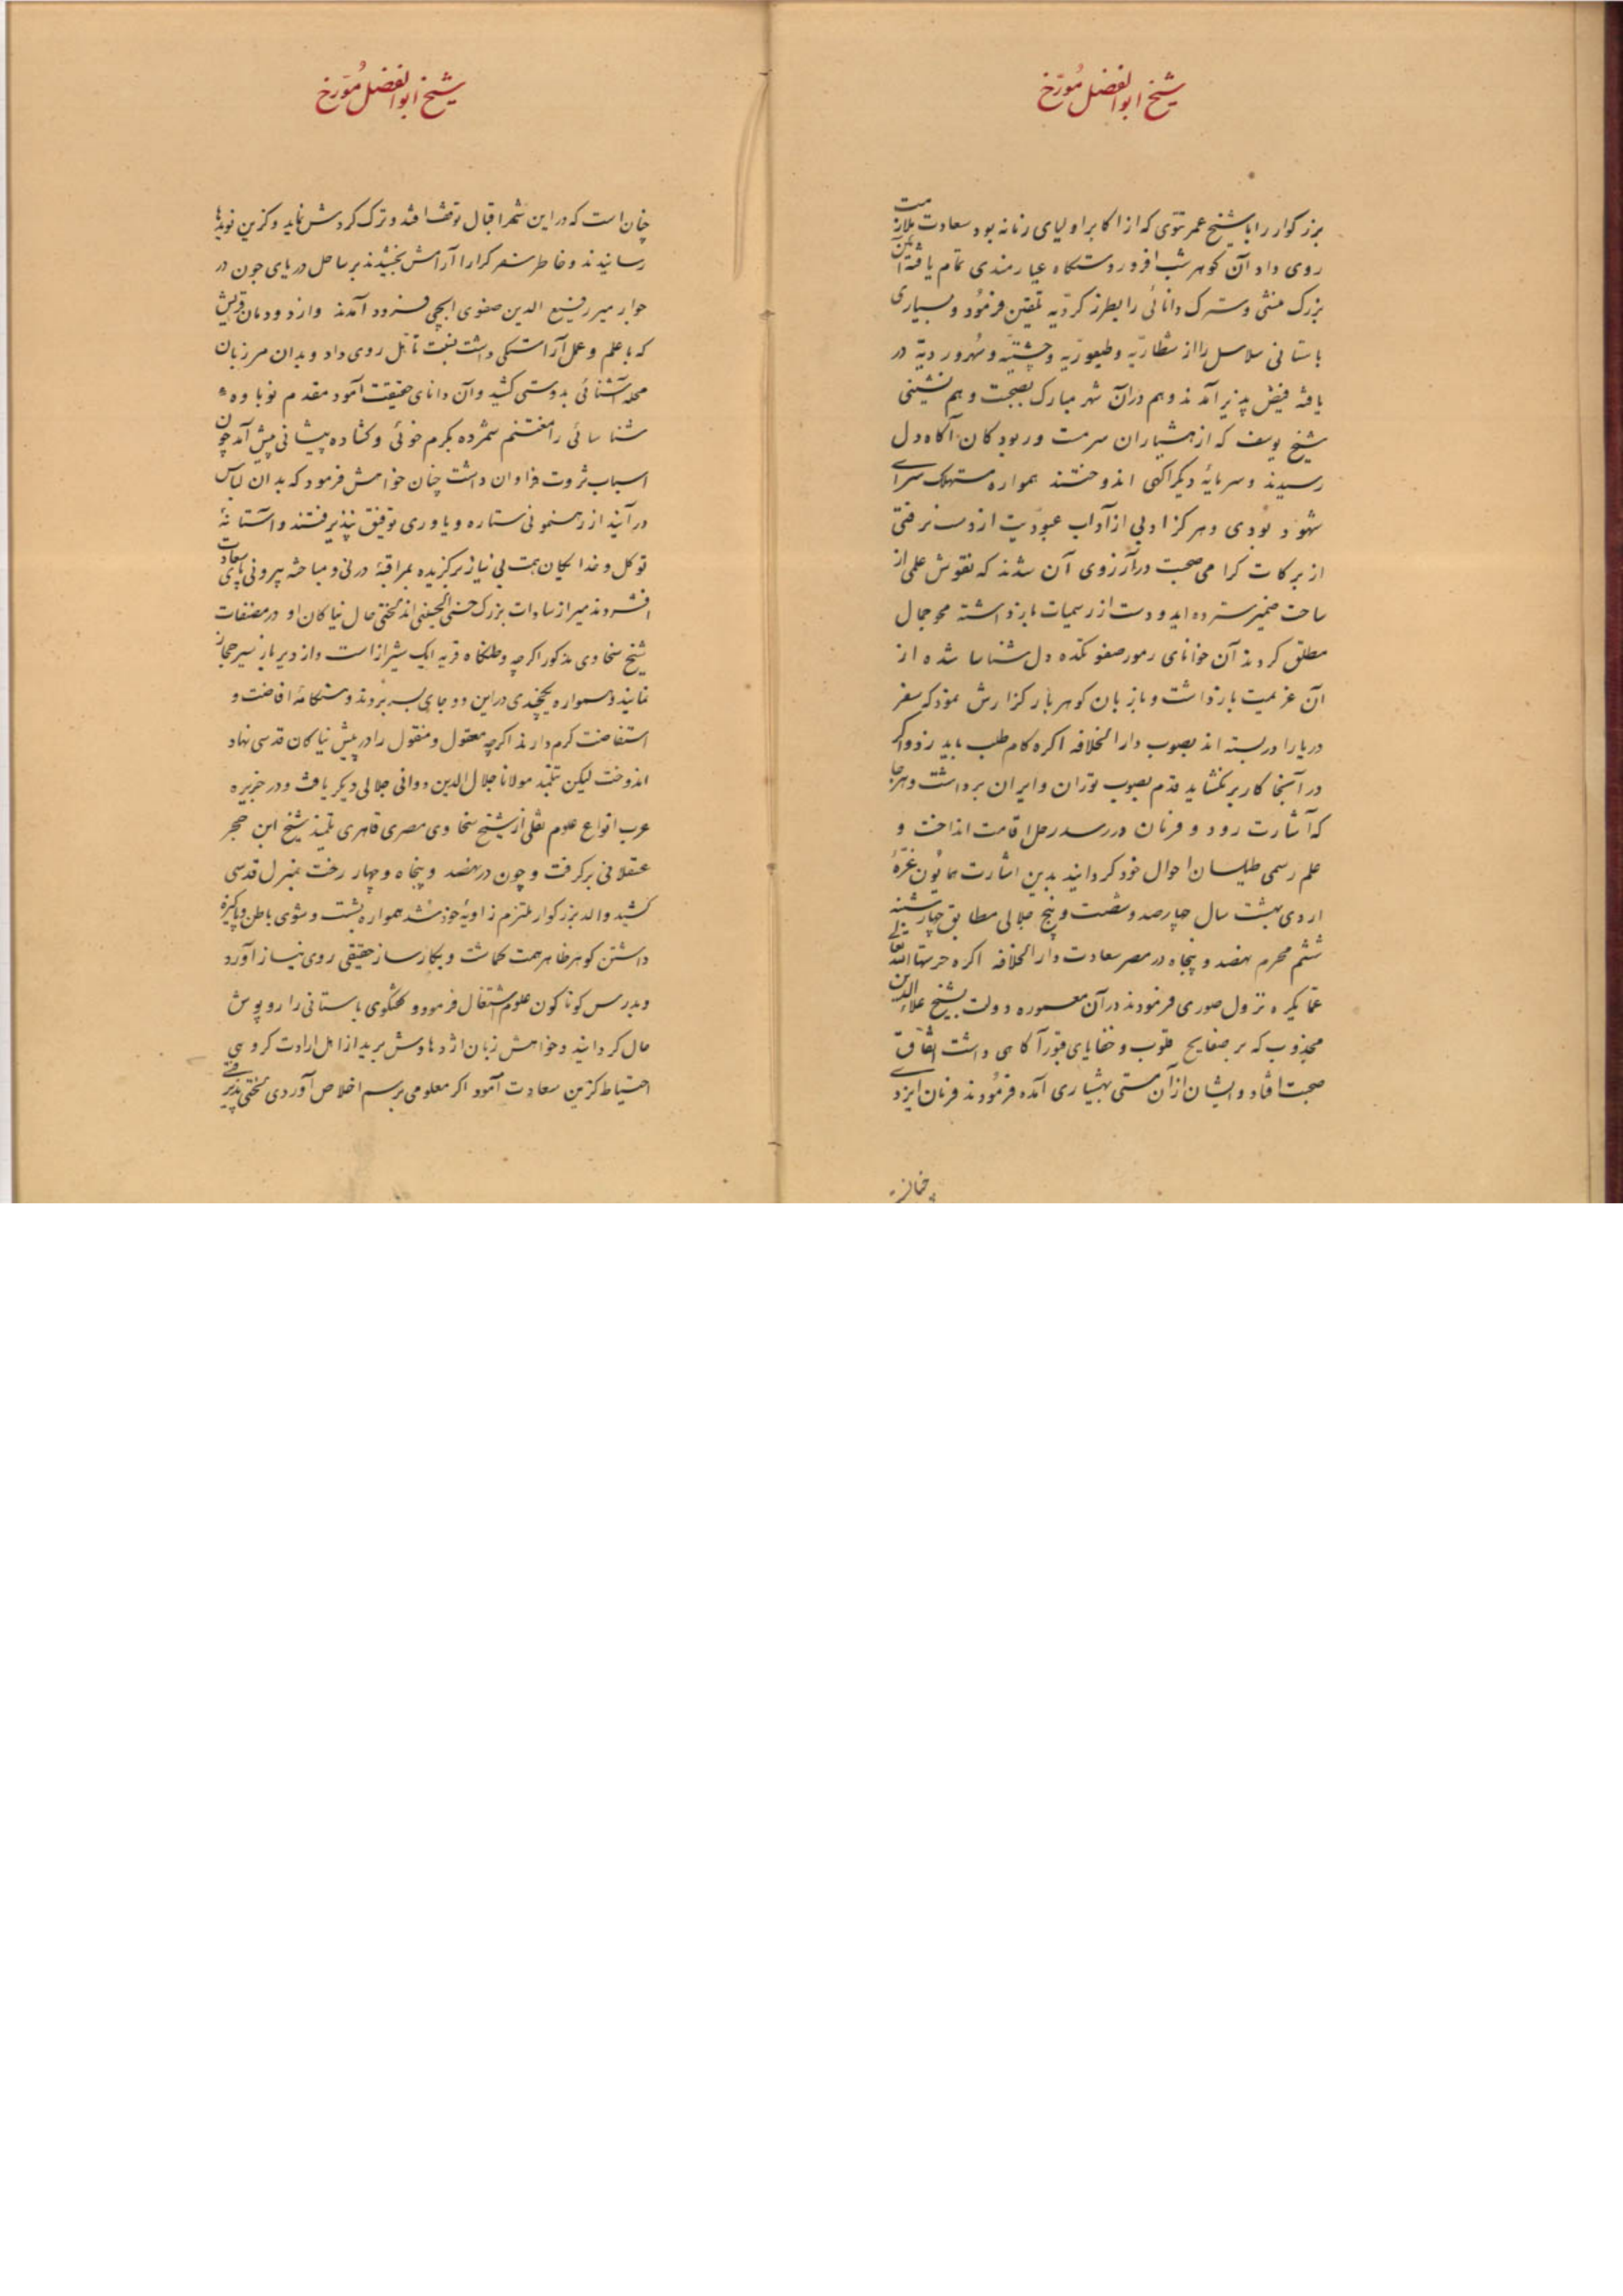 شیخ ابوالفضل مُورّخ
بزرکوار را با شیخ عمر تتوی که از اکابر اولیای زمانه بود سعادت ملازمت
روی داد آن کوهر شب افروز دستکاه عیارمندی تمام یافته آن
بزرک منشی و سترک دانائی را بطرز کبرویه تلقین فرمُود و بسیاری
باستانی سلاسل را از شطاریّه و طیفوریّه و چشتیّه و سُهروردیّه در
یافته فیض پذیر آمدند و هم دران شهر مبارک بصحبت و هم نشینی
شیخ یوسف که از هشیاران سرمست و ربودکان آکاه دل
رسیدند و سرمایهٔ دیکر اکهی اندوختند همواره مستهلک سرای
شهود بُودی و هرکز ادبی از آداب عبودیت از دست نرفتی
از برکات کرامی صحبت در آرزوی آن شدند که نقوش علمی از
ساحت ضمیر سترده اید و دست از رسمیات بازداشته محو جمال
مطلق کردند آن خوانای رموز صفوتکده دل شناسا شده از
ان عزیمت بازداشت و بزبان کوهربار کزارش نمود که سفر
دریا را در بسته اند بصوب دارالخلافه اکره کام طلب باید زد و اکر
در آنجا کار بر نکشاید قدم بصوب توران و ایران برداشت و هرجا
که اشارت رود و فرمان در رسد رحل اقامت انداخت و
علم رسمی طیلسان احوال خود کردانید بدین اشارت همایُون غرّهٔ
اردی بهشت سال چهارصد و شصت و پنج جلالی مطابق چهارشنبه
ششم محرم نهصد و پنجاه در مصر سعادت دارالخلافه اکره حرسها الله تعالی
عما یکره نزول صوری فرمودند در آن معموره دولت بشیخ علاء الدین
مجذوب که بر صفایح قلوب و خفایای قبور آکاهی داشت اتفاق
صحبت افتاد و ایشان از آن مستی بهشیاری آمده فرمُودند فرمان ایزد
چنانـ
شیخ ابوالفضل مُورّخ
چنان است که در این شهر اقبال توقف افتد و ترک کردش نماید و کزین نویدها
رسانیدند و خاطر سفر کرا را آرامش بخشیدند بر ساحل دریای جون در
جوار میر رفیع الدین صفوی الجی فرود آمدند و از دودمان قریش
که با علم و عمل آراستکی داشت نسبت تاهّل روی داد و بدان مرزبان
محله آشنائی بدوستی کشید و آن دانای حقیقت آمود مقدم نوباوهٔ
شناسائی را مغتنم شمرده بکرم خوئی و کشاده پیشانی پیش آمد چون
اسباب ثروت فراوان داشت چنان خواهش فرمود که بدان لباس
در آیند از رهنمونی ستاره و یاوری توفیق نپذیرفتند و آستانهٔ
توکل و خدا یکان همت بی نیاز برکزیده بمراقبهٔ درونی و مباحثه بیرونی پای سعادت
افشردند میر از سادات بزرک حسنی الحسینی اند لختی حال نیاکان او در مصنفات
شیخ سخاوی مذکور اکرچه وطنکاه قریه ایک شیراز است و از دیر باز سیر حجاز
نمایند و همواره یکچندی در این دو جای بسر بُردند و هنکامهٔ افاضت و
استفاضت کرم دارند اکرچه معقول و منقول را در پیش نیاکان قدسی نهاد
اندوخت لیکن بتلمذ مولانا جلال الدین دوانی جلالی دیکر یافت و در جزیره
عرب انواع علوم نقلی از شیخ سخاوی مصری قاهری تلمیذ شیخ ابن حجر
عسقلانی برکرفت و چون در نهصد و پنجاه و چهار رخت بمنزل قدسی
کشید والد بزرکوار ملتزم زاویهٔ خود شد همواره بشست و شوی باطن و پاکیزه
داشتن کوهر ظاهر همت کماشت و بکارساز حقیقی روی نیاز آورد
و بدرس کوناکون علوم اشتغال فرمود و کفتکوی باستانی را روپوش
حال کردانید و خواهش زبان اژدهاوش برید از اهل ارادت کروهی
احتیاط کزین سعادت آمود اکر معلومی برسم اخلاص آوردی لختی پذیرفتی